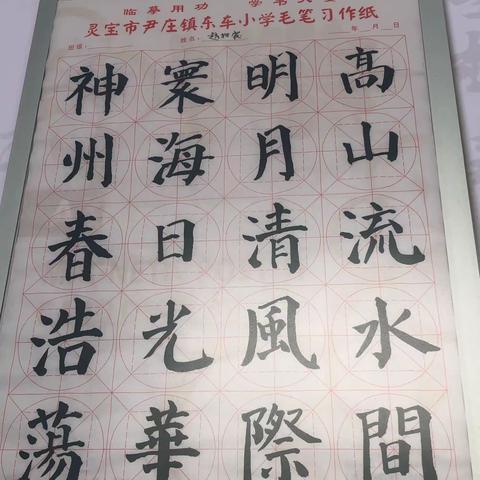 临摹用功
灵宝市尹庄镇东车小学毛笔习作纸
班级： 姓名： 年 月 日
高山流水間
明月清風際
寰海日光華
神州春浩蕩